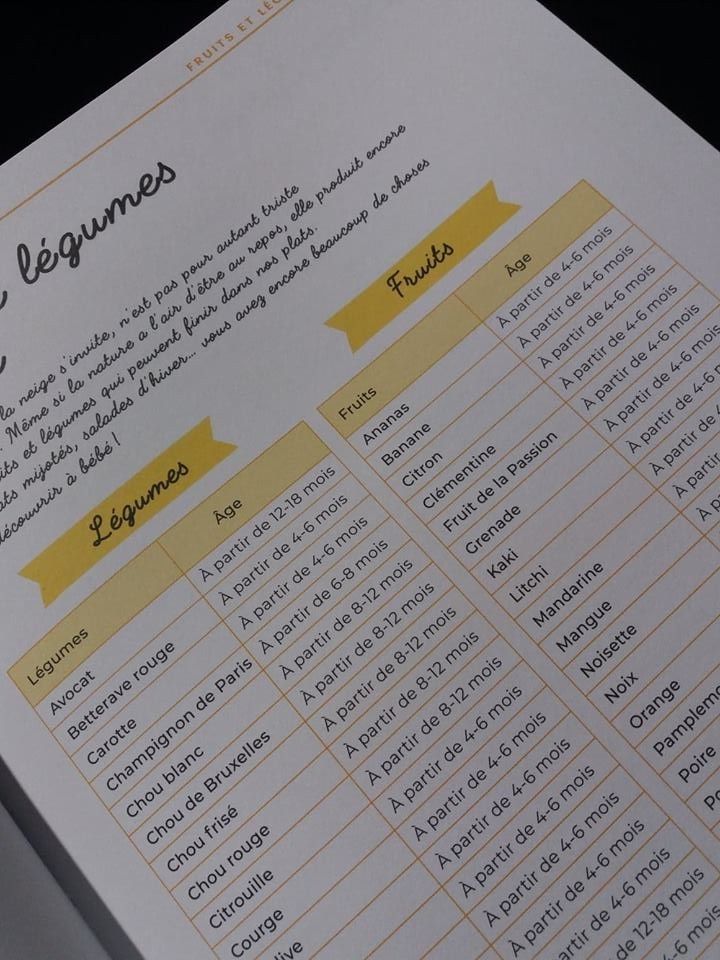 FRUITS ET LÉG
légumes
la neige s'invite, n'est pas pour autant triste
. Même si la nature a l'air d'être au repos, elle produit encore
its et légumes qui peuvent finir dans nos plats.
ats mijotés, salades d'hiver... vous avez encore beaucoup de choses
découvrir à bébé !
Légumes
Légumes
Âge
Avocat
À partir de 12-18 mois
Betterave rouge
À partir de 4-6 mois
Carotte
À partir de 4-6 mois
Champignon de Paris
À partir de 6-8 mois
Chou blanc
À partir de 8-12 mois
Chou de Bruxelles
À partir de 8-12 mois
Chou frisé
À partir de 8-12 mois
Chou rouge
À partir de 8-12 mois
Citrouille
À partir de 8-12 mois
Courge
À partir de 4-6 mois
À partir de 4-6 mois
À partir de 4-6 mois
À partir de 4-6 mois
À partir de 4-6 mois
artir de 4-6 mois
de 4-6 mois
de 12-18 mois
4-6 mois
Fruits
Fruits
Âge
Ananas
À partir de 4-6 mois
Banane
À partir de 4-6 mois
Citron
À partir de 4-6 mois
Clémentine
À partir de 4-6 mois
Fruit de la Passion
À partir de 4-6 mois
Grenade
À partir de 4-6 mois
Kaki
À partir de 4-6 m
Litchi
À partir de 4-
Mandarine
À partir de
Mangue
À partir
Noisette
Noix
Orange
Pamplem
Poire